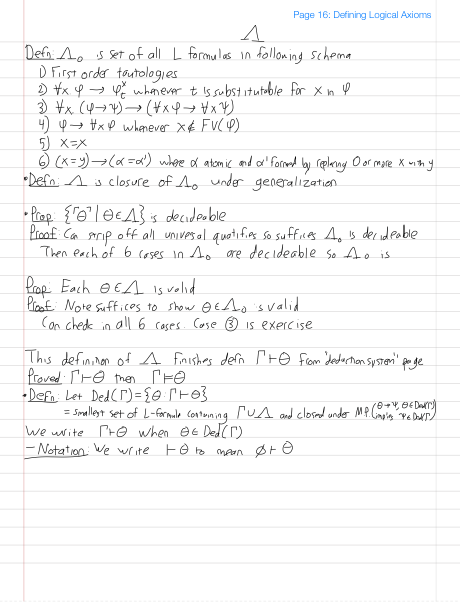 Page 16: Defining Logical Axioms
Λ
Defn: Λ₀ is set of all L formulas in following schema
1) First order tautologies
2) ∀x φ → φˣₜ whenever t is substitutable for x in φ
3) ∀x (φ→ψ) → (∀xφ → ∀xψ)
4) φ → ∀xφ whenever x∉ FV(φ)
5) x=x
6) (x=y) → (α=α') where α atomic and α' formed by replacing 0 or more x with y
• Defn: Λ is closure of Λ₀ under generalization
• Prop: {⌜θ⌝ | θ∈Λ} is decideable
Proof: Can strip off all universal quatifies so suffices Λ₀ is decideable
Then each of 6 cases in Λ₀ are decideable so Λ₀ is
Prop: Each θ∈Λ is valid
Proof: Note suffices to show θ∈Λ₀ is valid
Can check in all 6 cases. Case ③ is exercise
This definition of Λ finishes defn Γ⊢θ from "deduction system" page
Proved: Γ⊢θ then Γ⊨θ
• Defn: Let Ded(Γ) = {θ: Γ⊢θ}
= smallest set of L-formula containing Γ∪Λ and closed under MP (θ→ψ, θ∈Ded(Γ) implies ψ∈Ded(Γ))
We write Γ⊢θ when θ∈Ded(Γ)
– Notation: We write ⊢θ to mean ∅⊢θ